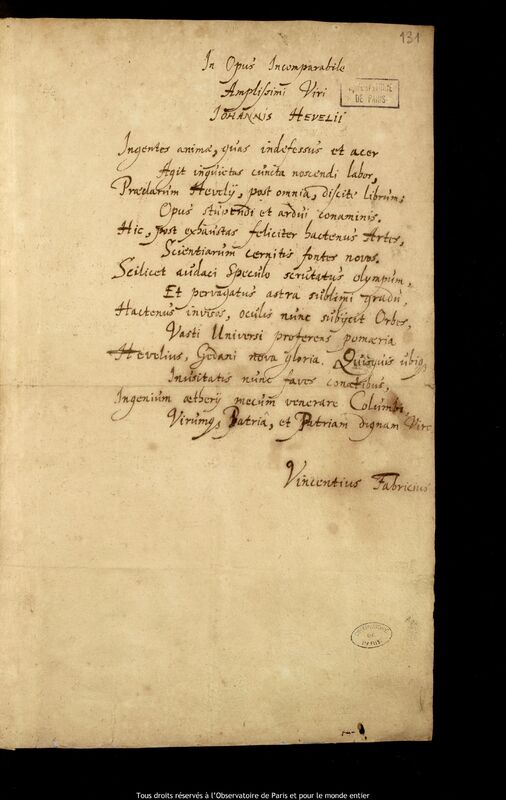 131
In Opus Incomparabile
Amplissimi Viri
IOHANNIS HEVELII
OBSERVATOIRE
DE PARIS
Ingentes animæ, quas indefessus et acer
Agit inquietas cuncta noscendi labor,
Præclarum Hevelij, post omnia, discite librum;
Opus stupendi et ardui conaminis.
Hic, post exhaustas feliciter hactenus Artes,
Scientiarum cernitis fontes novos.
Scilicet audaci Speculo scrutatus olympum,
Et pervagatus astra sublimi gradu,
Hactenus invisos, oculis nunc subijcit Orbes,
Vasti Universi proferens pomœria
Hevelius, Gedani nova gloria. Quisquis ubiq,
Inusitatis nunc faves conatibus,
Ingenium ætherij mecum venerare Columbi,
Virumq, Patriâ, et Patriam dignam Viro
Vincentius Fabricius
OBSERVATOIRE
DE
PARIS
Tous droits réservés à l'Observatoire de Paris et pour le monde entier